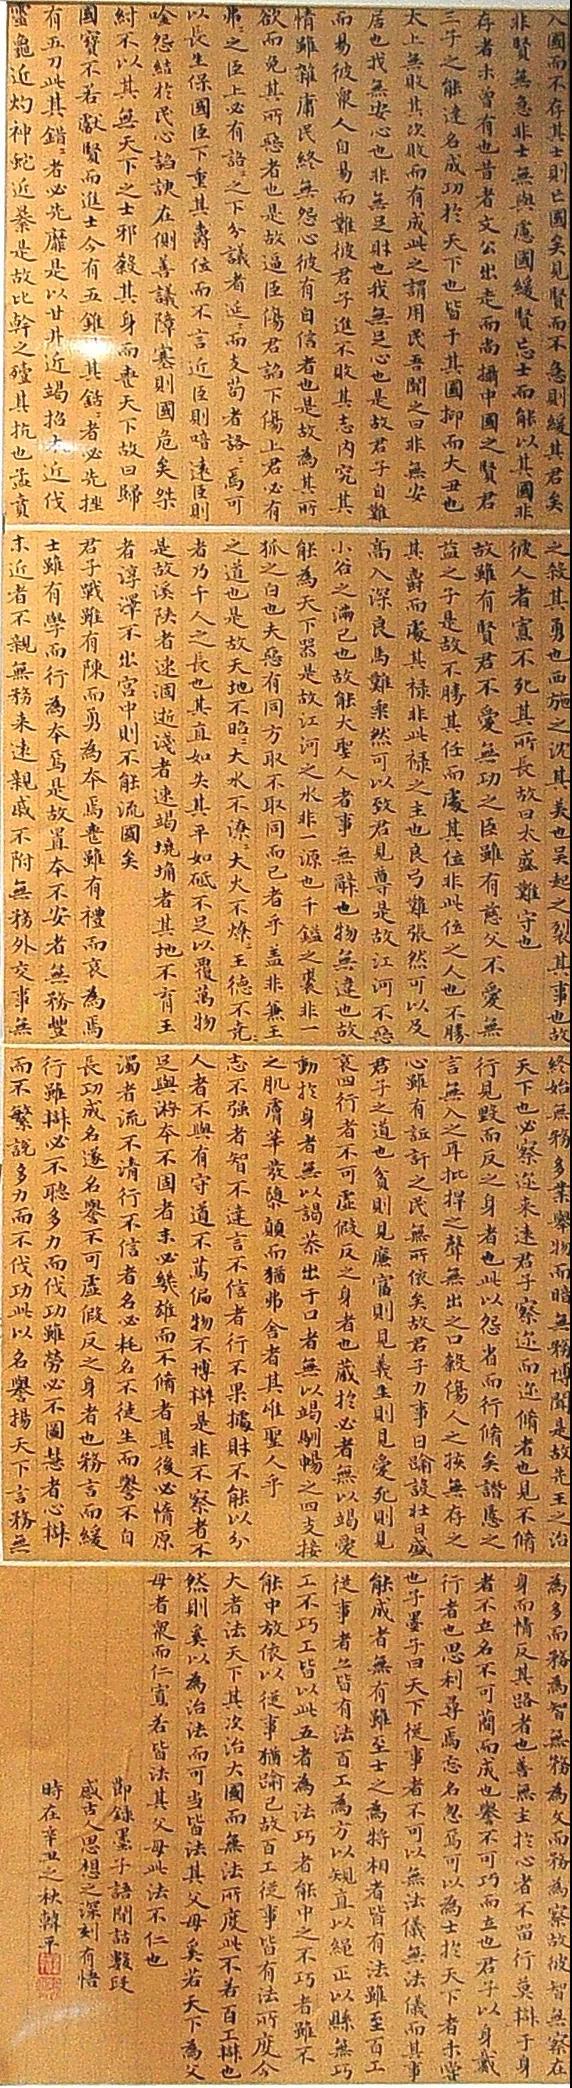 入國而不存其士則亡國矣見賢而不急則緩其君矣
非賢無急非士無與慮國緩賢忘士而能以其國
存者未曾有也昔者文公出走而尚攝中國之賢君
三子之能達名成功於天下也皆于其國抑而大丑也
太上無敗其次敗而有成此之謂用民吾聞之曰非無安
居也我無安心也非無足財也我無足心也是故君子自難
而易彼衆人自易而難彼君子進不敗其志內究其
情雖雜庸民終無怨心彼有自信者也是故為其所
欲而免其所惡者也是故逼臣傷君諂下傷上君必有
弗弗之臣上必有詻詻之下分議者延延而支苟者詻詻焉可
以長生保國臣下重其爵位而不言近臣則喑遠臣則
唫怨結於民心諂諛在側善議障塞則國危矣桀
紂不以其無天下之士邪殺其身而喪天下故曰歸
國寶不若獻賢而進士今有五錐此其銛銛者必先挫
有五刀此其錯錯者必先靡是以甘井近竭招木近伐
靈龜近灼神蛇近暴是故比幹之殪其抗也孟賁
之殺其勇也西施之沈其美也吳起之裂其事也故
彼人者寡不死其所長故曰太盛難守也
故雖有賢君不愛無功之臣雖有慈父不愛無
益之子是故不勝其任而處其位非此位之人也不勝
其爵而處其祿非此祿之主也良弓難張然可以及
高入深良馬難乘然可以致君見尊是故江河不惡
小谷之滿己也故能大聖人者事無辭也物無違也故
能為天下器是故江河之水非一源也千鎰之裘非一
狐之白也夫惡有同方取不取同而已者乎蓋非兼王
之道也是故天地不昭昭大水不潦潦大火不燎燎王德不堯堯
者乃千人之長也其直如矢其平如砥不足以覆萬物
是故溪陝者速涸逝淺者速竭墝埆者其地不育王
者淳澤不出宮中則不能流國矣
君子戰雖有陳而勇為本焉喪雖有禮而哀為焉
士雖有學而行為本焉是故置本不安者無務豐
末近者不親無務來遠親戚不附無務外交事無
終始無務多業舉物而暗無務博聞是故先王之治
天下也必察邇來遠君子察邇而邇脩者也見不脩
行見毀而反之身者也此以怨省而行脩矣譖慝之
言無入之耳批捍之聲無出之口殺傷人之孩無存之
心雖有詆訐之民無所依矣故君子力事日踰設壯日盛
君子之道也貧則見廉富則見義生則見愛死則見
哀四行者不可虛假反之身者也藏於心者無以竭愛
動於身者無以謁恭出于口者無以竭馴暢之四支接
之肌膚華髮隳顛而猶弗舍者其惟聖人乎
志不强者智不達言不信者行不果據財不能以分
人者不與有守道不萬偏物不博辯是非不察者不
足與游本不固者末必幾雄而不脩者其後必惰原
濁者流不清行不信者名必耗名不徒生而譽不自
長功成名遂名譽不可虛假反之身者也務言而緩
行雖辯必不聽多力而伐功雖勞必不圖慧者心辯
而不繁說多力而不伐功此以名譽揚天下言務無
為多而務為智無務為文而務為察故彼智無察在
身而情反其路者也善無主於心者不留行莫辯于身
者不立名不可簡而成也譽不可巧而立也君子以身戴
行者也思利尋焉忘名忽焉可以為士於天下者未嘗
也子墨子曰天下從事者不可以無法儀無法儀而其事
能成者無有雖至士之為將相者皆有法雖至百工
從事者亦皆有法百工為方以矩直以繩正以縣無巧
工不巧工皆以此五者為法巧者能中之不巧者雖不
能中放依以從事猶踰己故百工從事皆有法所度今
大者法天下其次治大國而無法所度此不若百工辯也
然則奚以為治法而可当皆法其父母奚若天下為父
母者衆而仁寡若皆法其父母此法不仁也
節錄墨子語閒詁數段
感古人思想之深刻有悟
時在辛丑之秋韓平